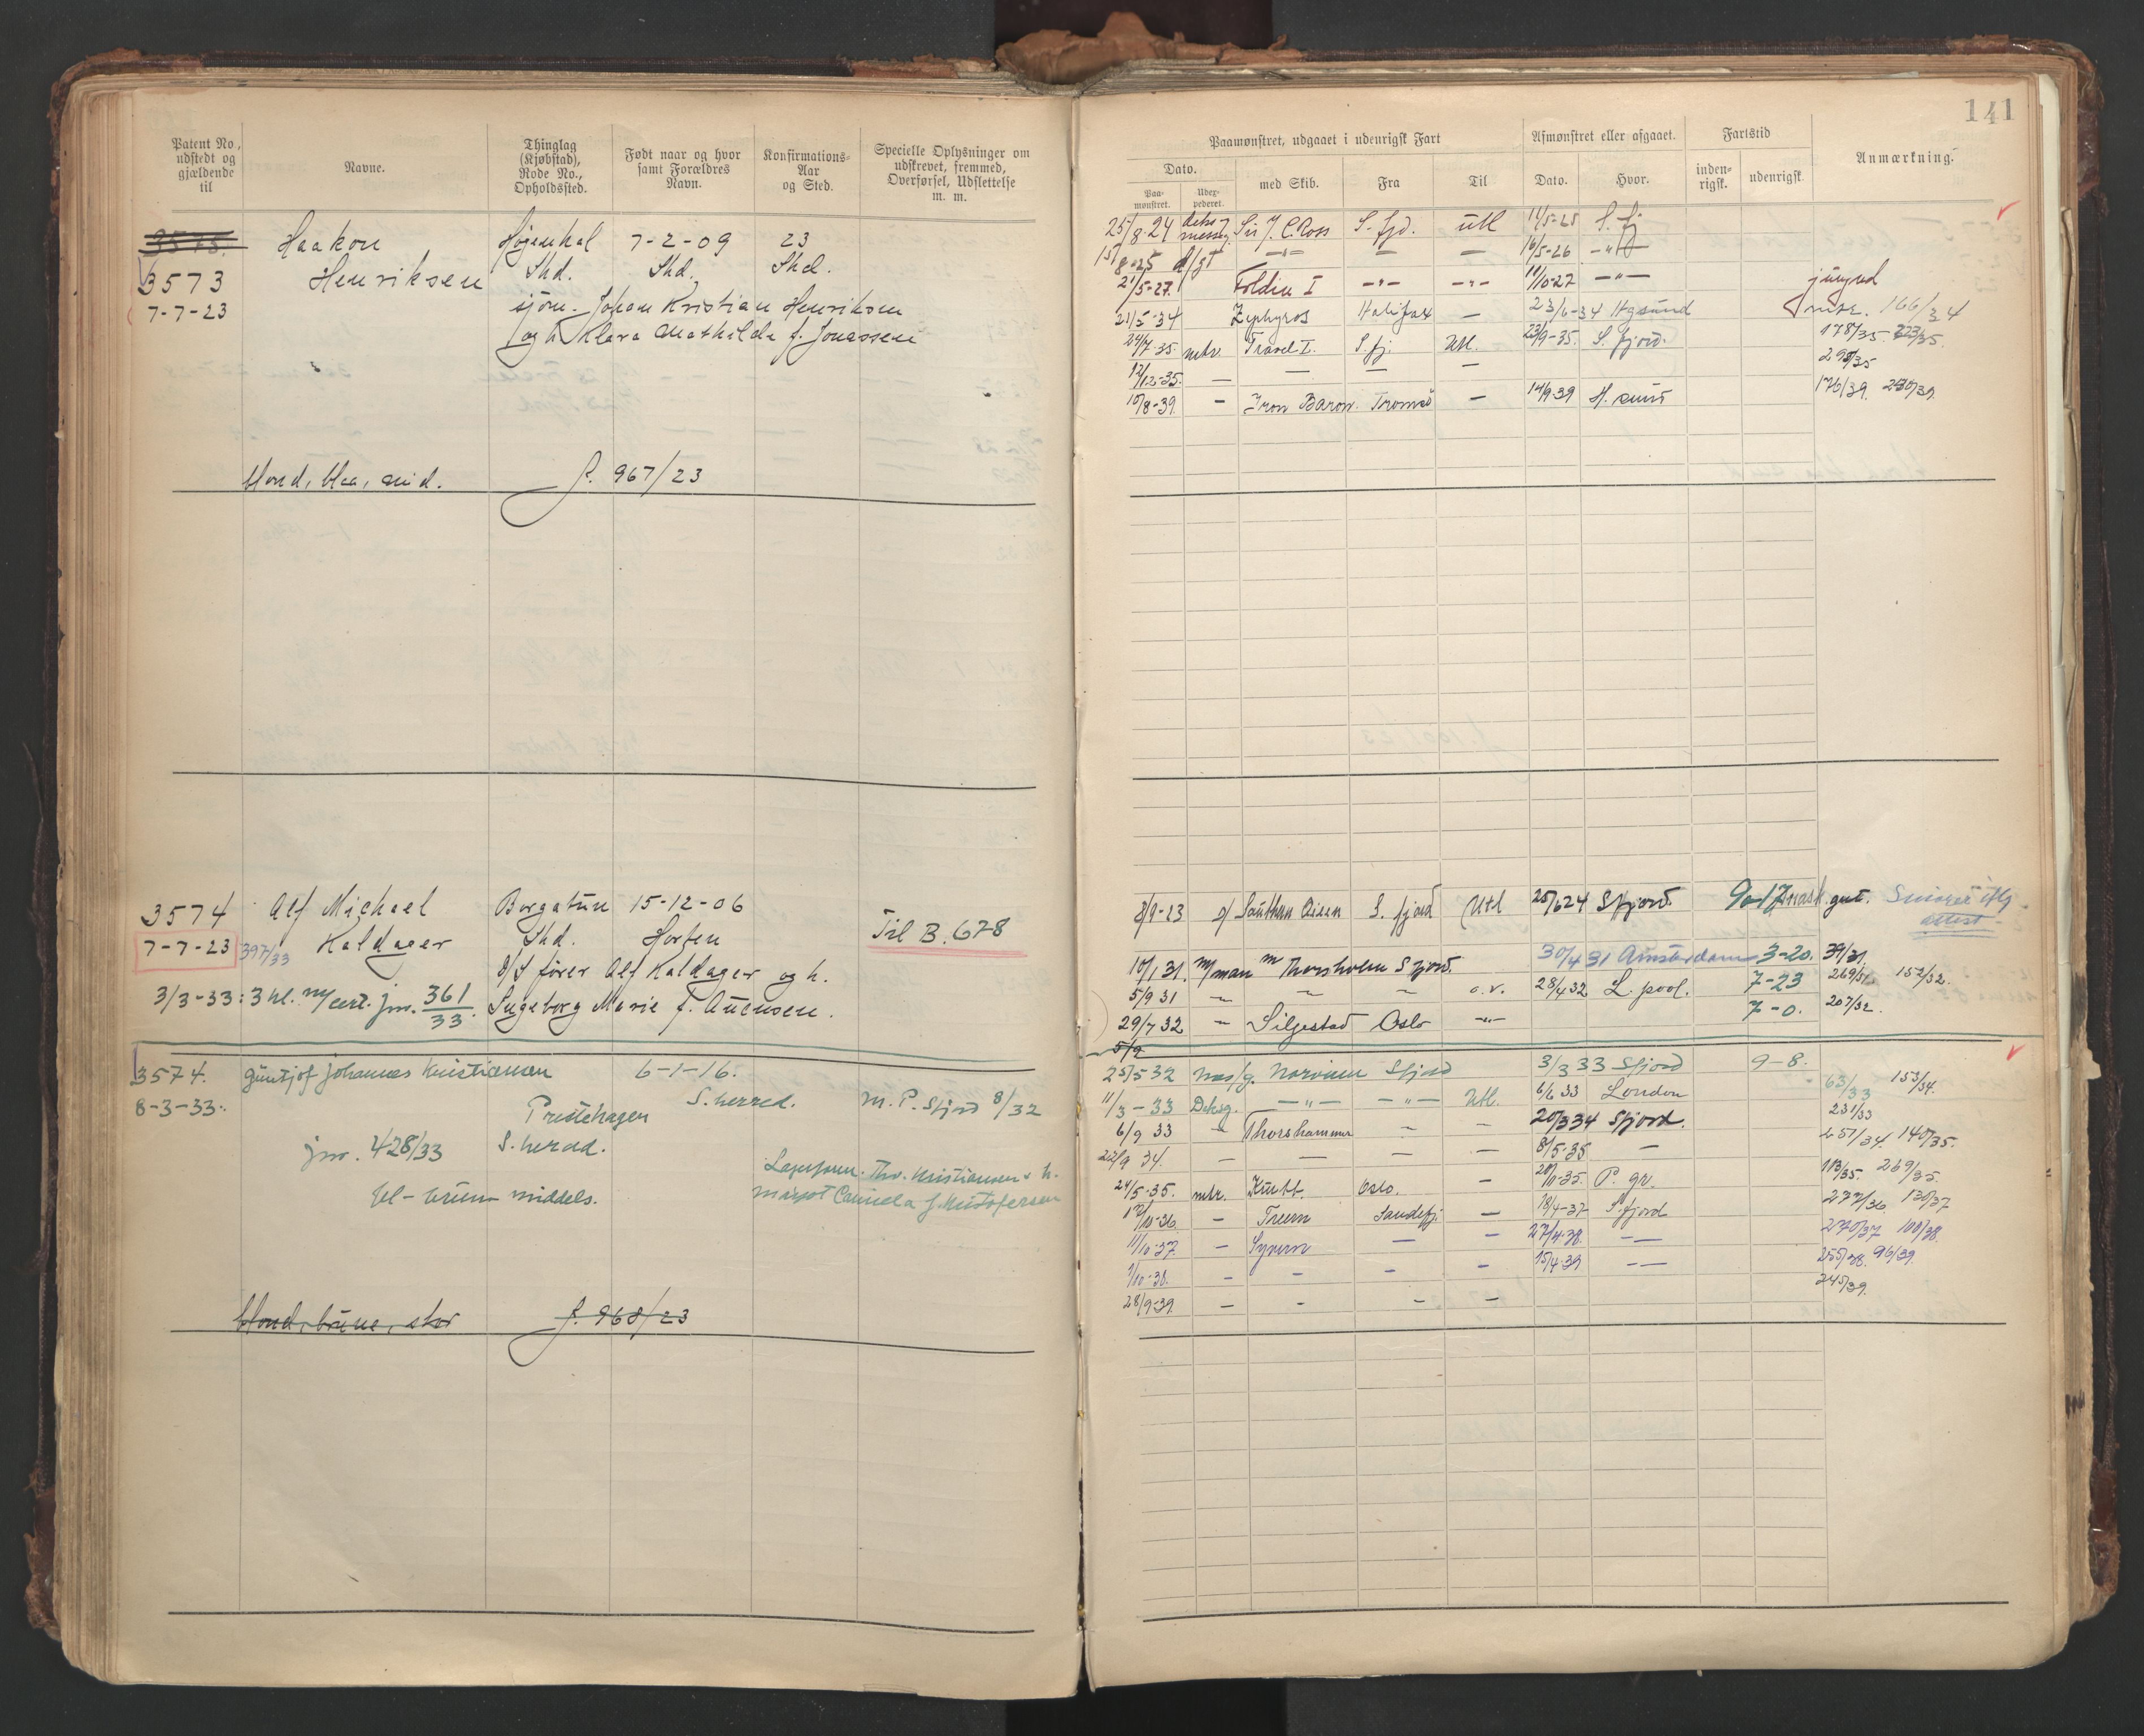 141
Patent No., udstedt og gjældende til
Navne.
Thinglag (Kjøbstad), Rode No., Opholdssted.
Født naar og hvor samt Forældres Navn.
Konfirmations-Aar og Sted.
Specielle Oplysninger om udskrevet, fremmed, Overførsel, Udslettelse m. m.
Paamønstret, udgaaet i udenrigsk Fart
Afmønstret eller afgaaet.
Fartstid
Anmærkning.
Dato.
Paa-mønstret.
Udex-pederet.
med Skib.
Fra
Til
Dato.
Hvor.
inden-rigsk.
udenrigsk.
3575. Haakon Højenhal 7-2-09 23
3573 Henriksen Shd. Shd. Shd.
7-7-23 sjöm. Johan Kristian Henriksen
og h. Klara Mathilde f. Jonassen
blond, blaa, mid. f. 967/23
25/8-24 Sir J. C. Ross S. fjd. utl 14/5-25 S. fj
8-25 d/gt —"— — — 16/5-26 —"—
21/5-27. Foldin I —"— —"— 11/10-27 —"— jungmd
21/5-34 Zephyros Halifax — 23/6-34 Hgsund mtr. 166/34
24/7-35. mtr. Travel I. S. fj. Utl. 23/9-35. S. fjord. 178/35. 223/35.
12/12-35. — — — — 295/35
10/8-39. — Iron Baron. Tromsö — 14/9-39 H. sund 176/39. 230/39.
3574 Alf Michael Borgatun 15-12-06
7-7-23 397/33 Kaldager Shd. Horten Til B. 678
S/S fører Alf Kaldager og h.
3/3-33: 3 kl. m/cert. jnr. 361/33 Ingeborg Marie f. Auensen.
8/9-23 Southern S. fjord Utl 25/6 24 Sfjord. gut. attest
10/1 31. m/man Thorsholm Sfjord. 30/4 31 Amsterdam 3-20. 39/31.
5/9 31 — — — o.v. 28/4 32 L. pool. 7-23 269/31 152/32.
29/7 32 — Siljestad Oslo —"— 7-0. 207/32.
5/9
3574. Johannes Kristiansen 6-1-16.
8-3-33. Prestehagen S. herred. M. P. Sfjord 8/32
jnr. 428/33 S. herad.
bl- brun middels. Thv. Kristiansen & h.
blond, brune, stor f. 968/23
25/5 32 Mes/g. Norvinn Sfjord 3/3 33 Sfjord 9-8.
11/3-33 Deksg. —"— —"— Utl. 6/6 33 London 63/33 153/34.
6/9 33 — Thorshammer — — 20/3 34 Sfjord. 231/33
22/9 34. — — — — 8/5-35 — 251/34. 140/35.
24/5-35. mtr. Oslo. — P. gr. 113/35. 269/35.
12/10-36 — Treern Sandefj. — 18/4-37 S.fjord 277/36 130/37
11/10-37. — Syvern — — 27/4-38. —— 270/37 100/38.
1/10-38. — — — — 15/4-39 —— 255/38. 96/39.
28/9-39. — — — — 245/39.